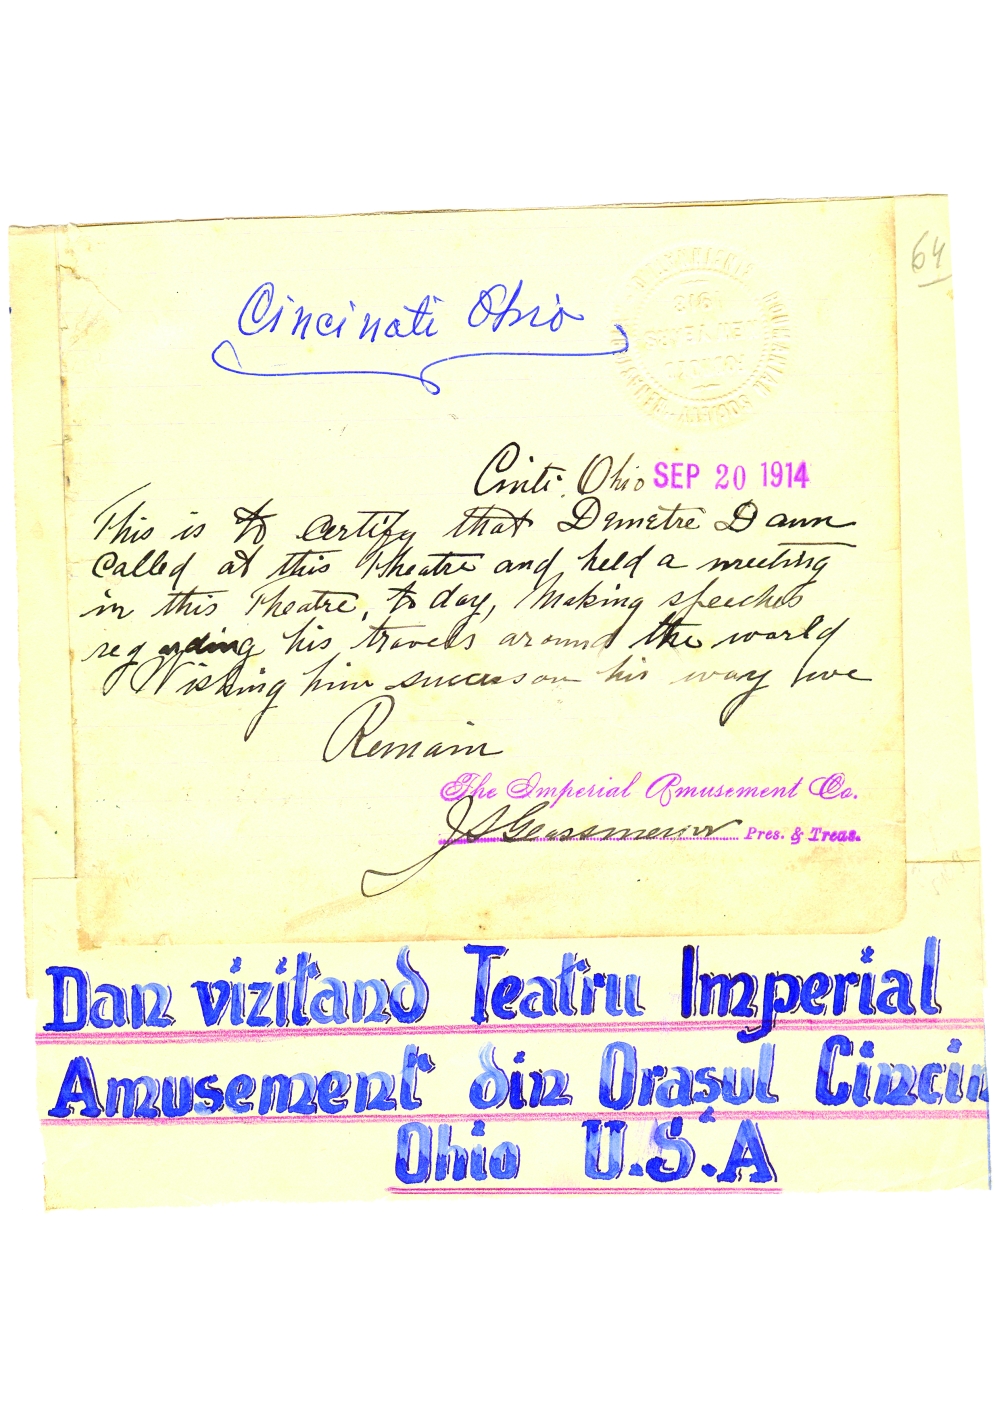 64
Cincinati Ohio
Cinti. Ohio SEP 20 1914
This is to certify that Demetre Dann
Called at this Theatre and held a meeting
in this Theatre, to day, Making speeches
regarding his travels around the world
Wishing him success on his way we
Remain
The Imperial Amusement Co.
Pres. & Treas.
Dan vizitand Teatru Imperial
Amusement din Orașul Cincin
Ohio U.S.A